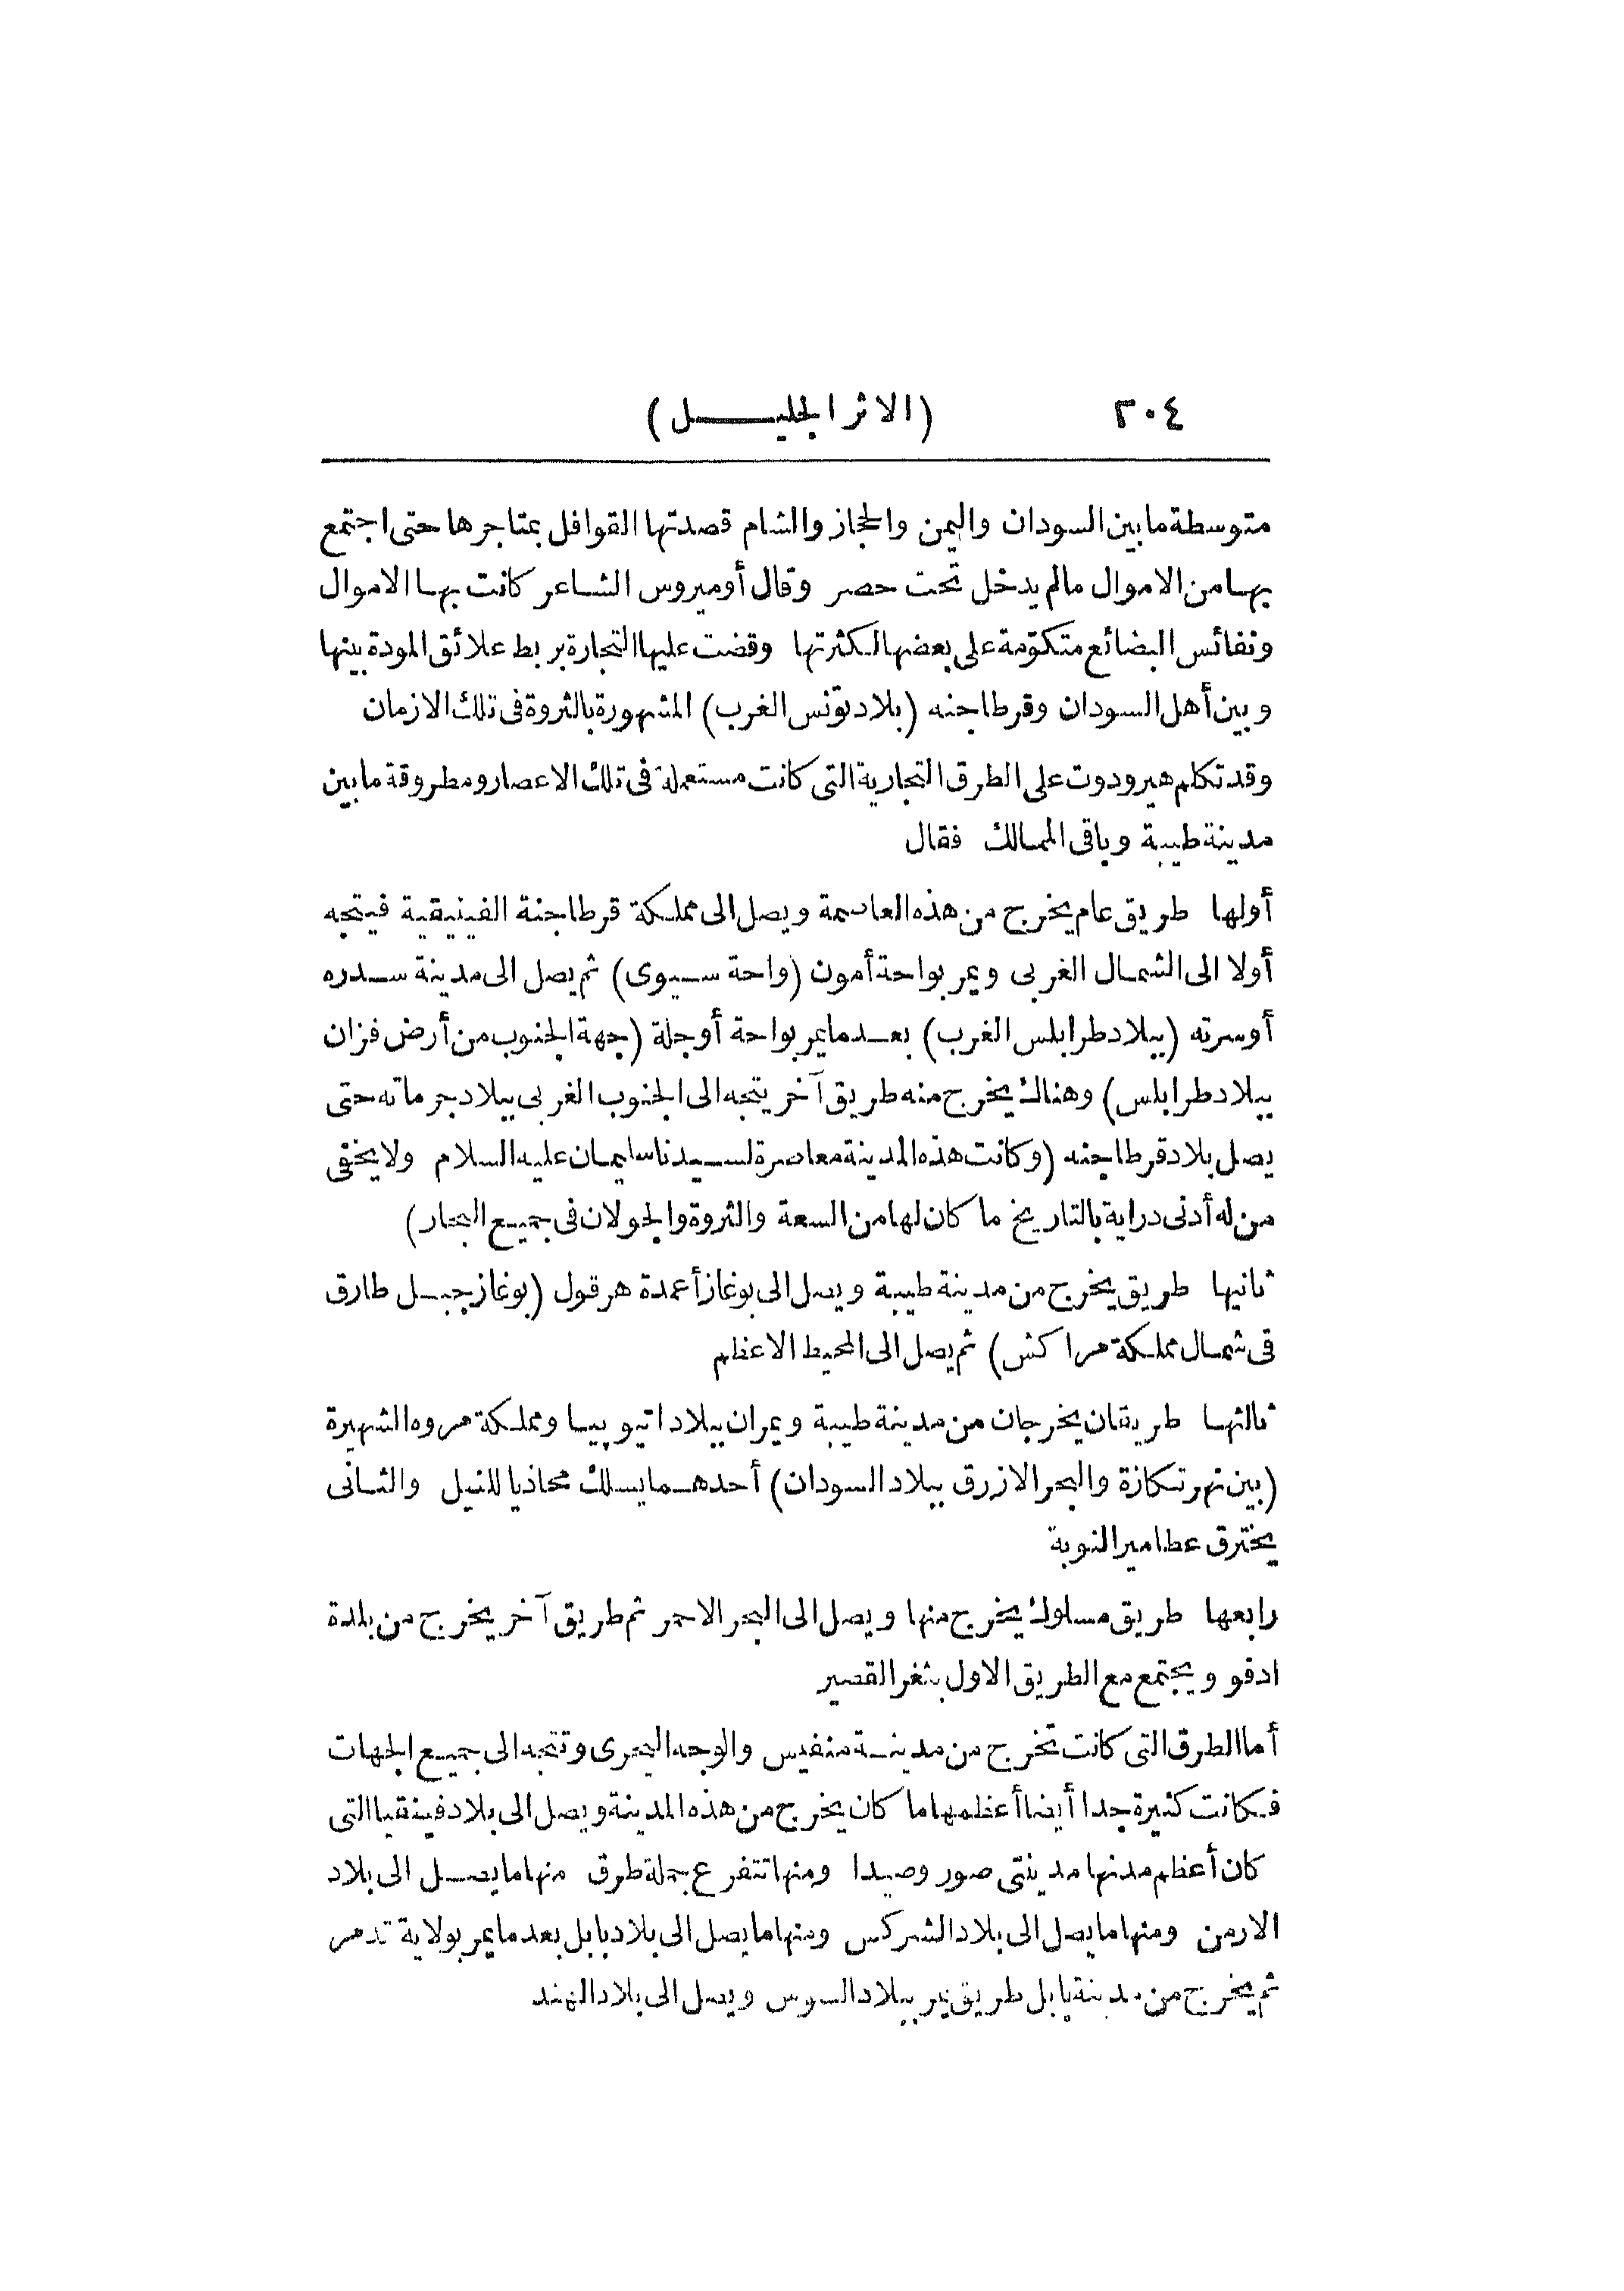 ٢٠٤ (الاثر الجليل)
متوسطة ما بين السودان واليمن والحجاز والشام قصدتها القوافل بمتاجرها حتى اجتمع
بها من الاموال مالم يدخل تحت حصر وقال أوميروس الشاعر كانت بها الاموال
ونفائس البضائع متكوّمة على بعضها لكثرتها وقضت عليها التجارة بربط علائق المودة بينها
وبين أهل السودان وقرطاجنه (بلاد تونس الغرب) المشهورة بالثروة فى تلك الازمان
وقد تكلم هيرودوت على الطرق التجارية التى كانت مستعملة فى تلك الاعصار ومطروقة ما بين
مدينة طيبة وباقى الممالك فقال
أولها طريق عام يخرج من هذه العاصمة ويصل الى مملكة قرطاجنة الفينيقية فيتجه
أولا الى الشمال الغربى ويمر بواحة أمون (واحة سيوى) ثم يصل الى مدينة سدره
أوسرته (ببلاد طرابلس الغرب) بعد ما يمر بواحة أوجلة (جهة الجنوب من أرض فزان
ببلاد طرابلس) وهناك يخرج منه طريق آخر يتجه الى الجنوب الغربى ببلاد جرماته حتى
يصل بلاد قرطاجنه (وكانت هذه المدينة معاصرة لسيدنا سليمان عليه السلام ولا يخفى
من له أدنى دراية بالتاريخ ما كان لها من السعة والثروة والجولان فى جميع البحار)
ثانيها طريق يخرج من مدينة طيبة ويصل الى بوغاز أعمدة هرقول (بوغاز جبل طارق
فى شمال مملكة مراكش) ثم يصل الى المحيط الاعظم
ثالثها طريقان يخرجان من مدينة طيبة ويمران ببلاد اتيوبيا ومملكة مروه الشهيرة
(بين نهر تكازة والبحر الازرق ببلاد السودان) أحدهما يسلك محاذيا للنيل والثانى
يخترق عطامير النوبة
رابعها طريق مسلوك يخرج منها ويصل الى البحر الاحمر ثم طريق آخر يخرج من بلدة
ادفو ويجتمع مع الطريق الاول بثغر القصير
أما الطرق التى كانت تخرج من مدينة منفيس والوجه البحرى وتتجه الى جميع الجهات
فكانت كثيرة جدا أيضا أعظمها ما كان يخرج من هذه المدينة ويصل الى بلاد فينقيا التى
كان أعظم مدنها مدينتى صور وصيدا ومنها تتفرع جملة طرق منها ما يصل الى بلاد
الارمن ومنها ما يصل الى بلاد الشركس ومنها ما يصل الى بلاد بابل بعد ما يمر بولاية تدمر
ثم يخرج من مدينة بابل طريق يمر ببلاد السوس ويصل الى بلاد الهند